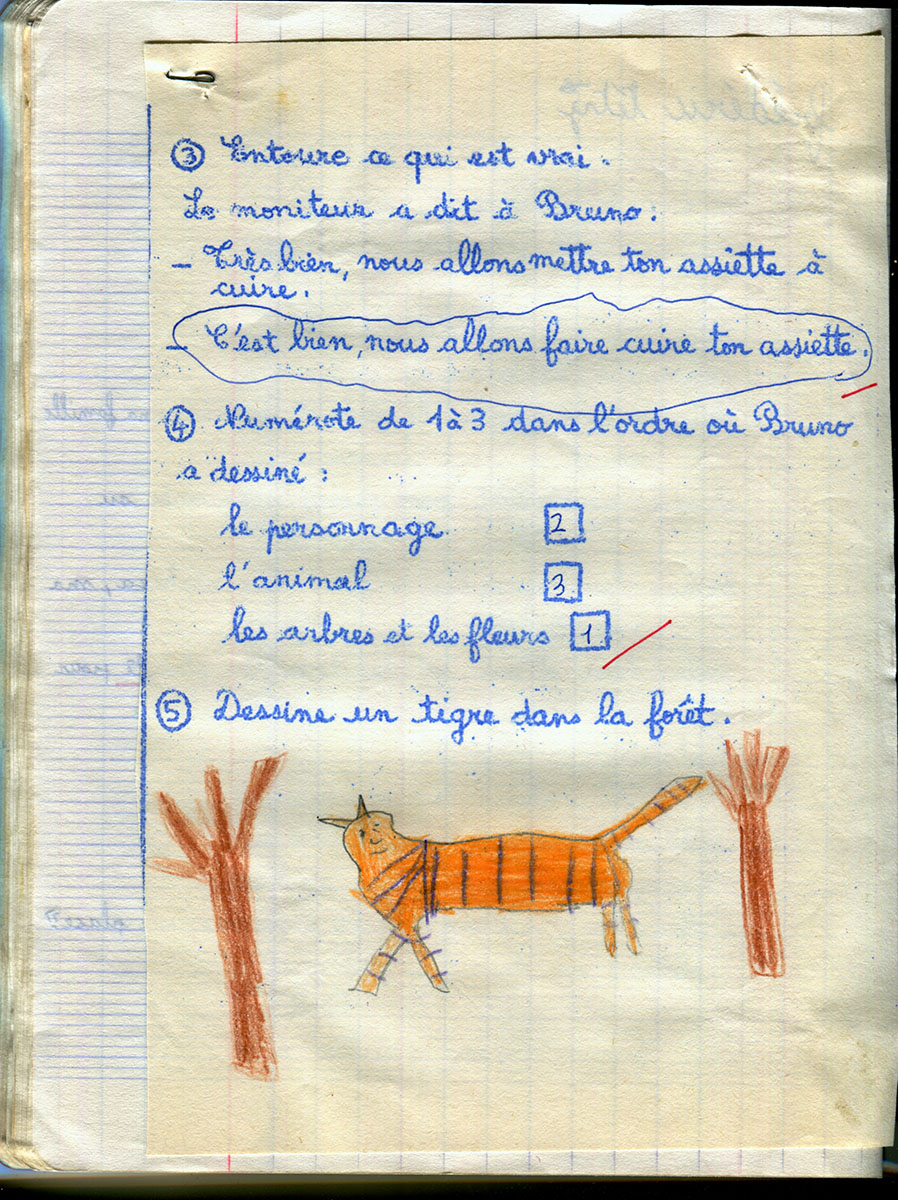 ③ Entoure ce qui est vrai.
Le moniteur a dit à Bruno:
– Très bien, nous allons mettre ton assiette à
cuire.
– C'est bien, nous allons faire cuire ton assiette.
④ Numérote de 1 à 3 dans l'ordre où Bruno
a dessiné :
le personnage 2
l'animal 3
les arbres et les fleurs 1
⑤ Dessine un tigre dans la forêt.